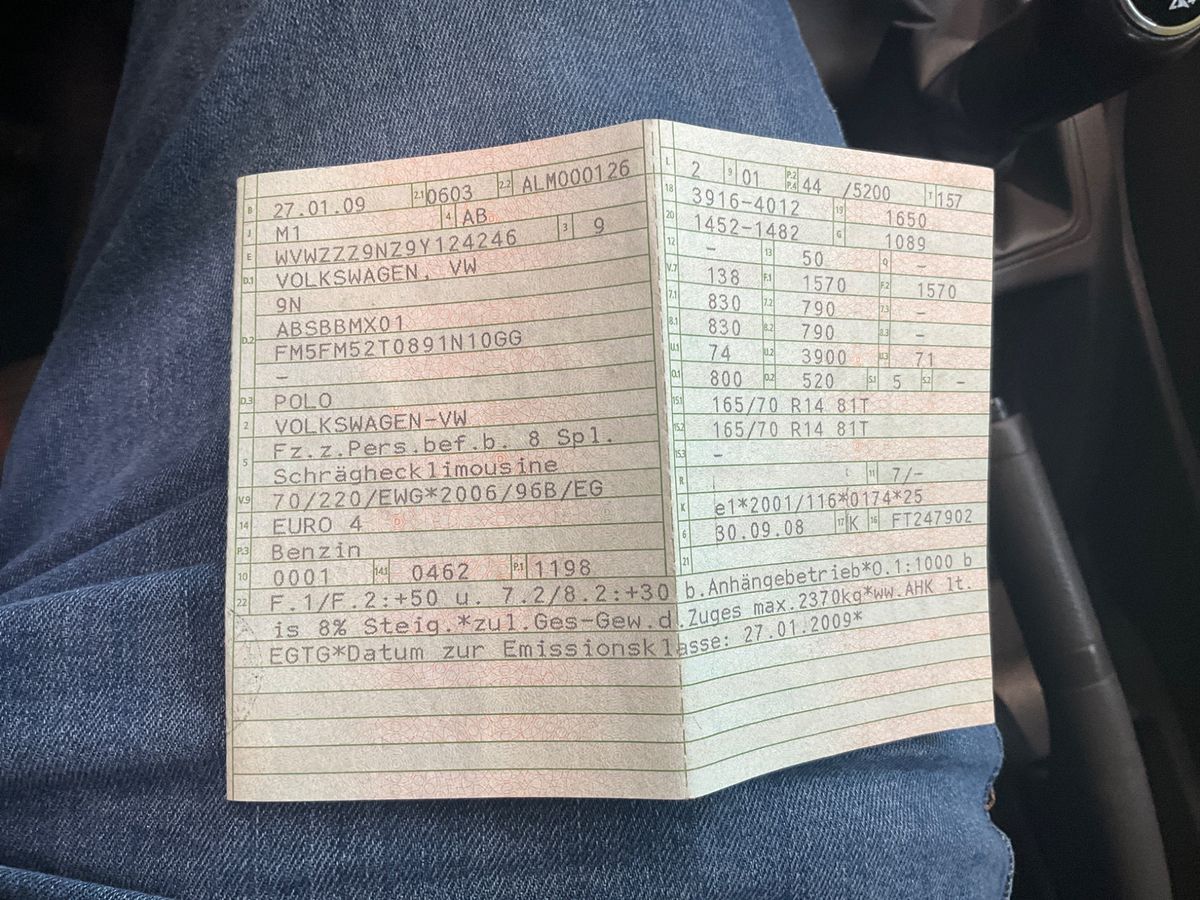 B 27.01.09 2.1 0603 2.2 ALM000126
J M1 4 AB
E WVWZZZ9NZ9Y124246 3 9
D.1 VOLKSWAGEN, VW
9N
D.2 ABSBBMX01
FM5FM52T0891N10GG
–
D.3 POLO
2 VOLKSWAGEN-VW
5 Fz.z.Pers.bef.b. 8 Spl.
Schräghecklimousine
V.9 70/220/EWG*2006/96B/EG
14 EURO 4
P.3 Benzin
10 0001 14.1 0462 P.1 1198
L 2 9 01 P.2 P.4 44 /5200 T 157
18 3916-4012 19 1650
20 1452-1482 G 1089
12 – 13 50 Q –
V.7 138 F.1 1570 F.2 1570
7.1 830 7.2 790 7.3 –
8.1 830 8.2 790 8.3 –
U.1 74 U.2 3900 U.3 71
O.1 800 O.2 520 S.1 5 S.2 –
15.1 165/70 R14 81T
15.2 165/70 R14 81T
15.3 –
R 11 7/–
K e1*2001/116*0174*25
6 30.09.08 17 K 16 FT247902
21
22 F.1/F.2:+50 u. 7.2/8.2:+30 b.Anhängebetrieb*O.1:1000 b
is 8% Steig.*zul.Ges-Gew.d.Zuges max.2370kg*ww.AHK lt.
EGTG*Datum zur Emissionsklasse: 27.01.2009*